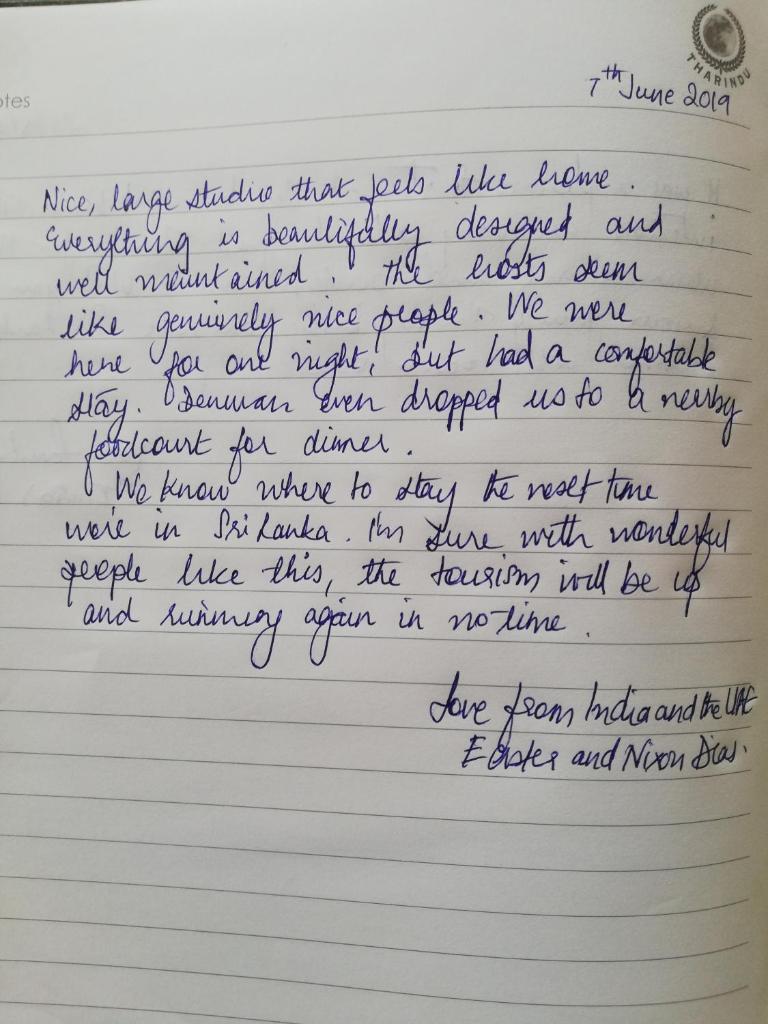 THARINDU
otes
7th June 2019
Nice, large studio that feels like home.
Everything is beautifully designed and
well maintained. The hosts seem
like genuinely nice people. We were
here for one night, but had a comfortable
stay. even dropped us to a nearby
foodcourt for dinner.
We know where to stay the next time
we're in Sri Lanka. I'm sure with wonderful
people like this, the tourism will be up
and running again in no-time.
Love from India and the UAE
and Nixon Dias.